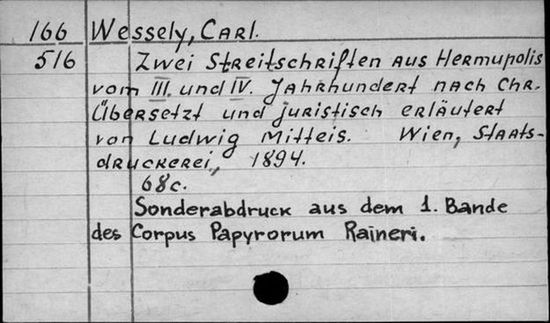 166 Wessely, Carl.
516 Zwei Streitschriften aus Hermupolis
vom III. und IV. Jahrhundert nach Chr.
Übersetzt und juristisch erläutert
von Ludwig Mitteis. Wien, Staats-
druckerei, 1894.
68c.
Sonderabdruck aus dem 1. Bande
des Corpus Papyrorum Raineri.